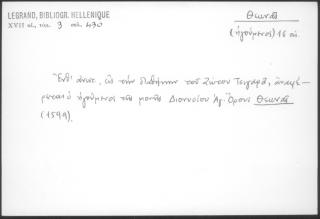 LEGRAND, BIBLIOGR. HELLENIQUE
XVII αἰ. τόμ. 3 σελ. 430
Θεωνᾶς
(ἡγούμενος) 16 αἰ.
Ἔνθ' ἀνωτ. ὡς τὴν διαθήκην τοῦ Ζώτου Τσιγαρᾶ, ἀναφέ-
ρεται ὁ ἡγούμενος τῆς μονῆς Διονυσίου Ἁγ. Ὄρους Θεωνᾶς
(1599).